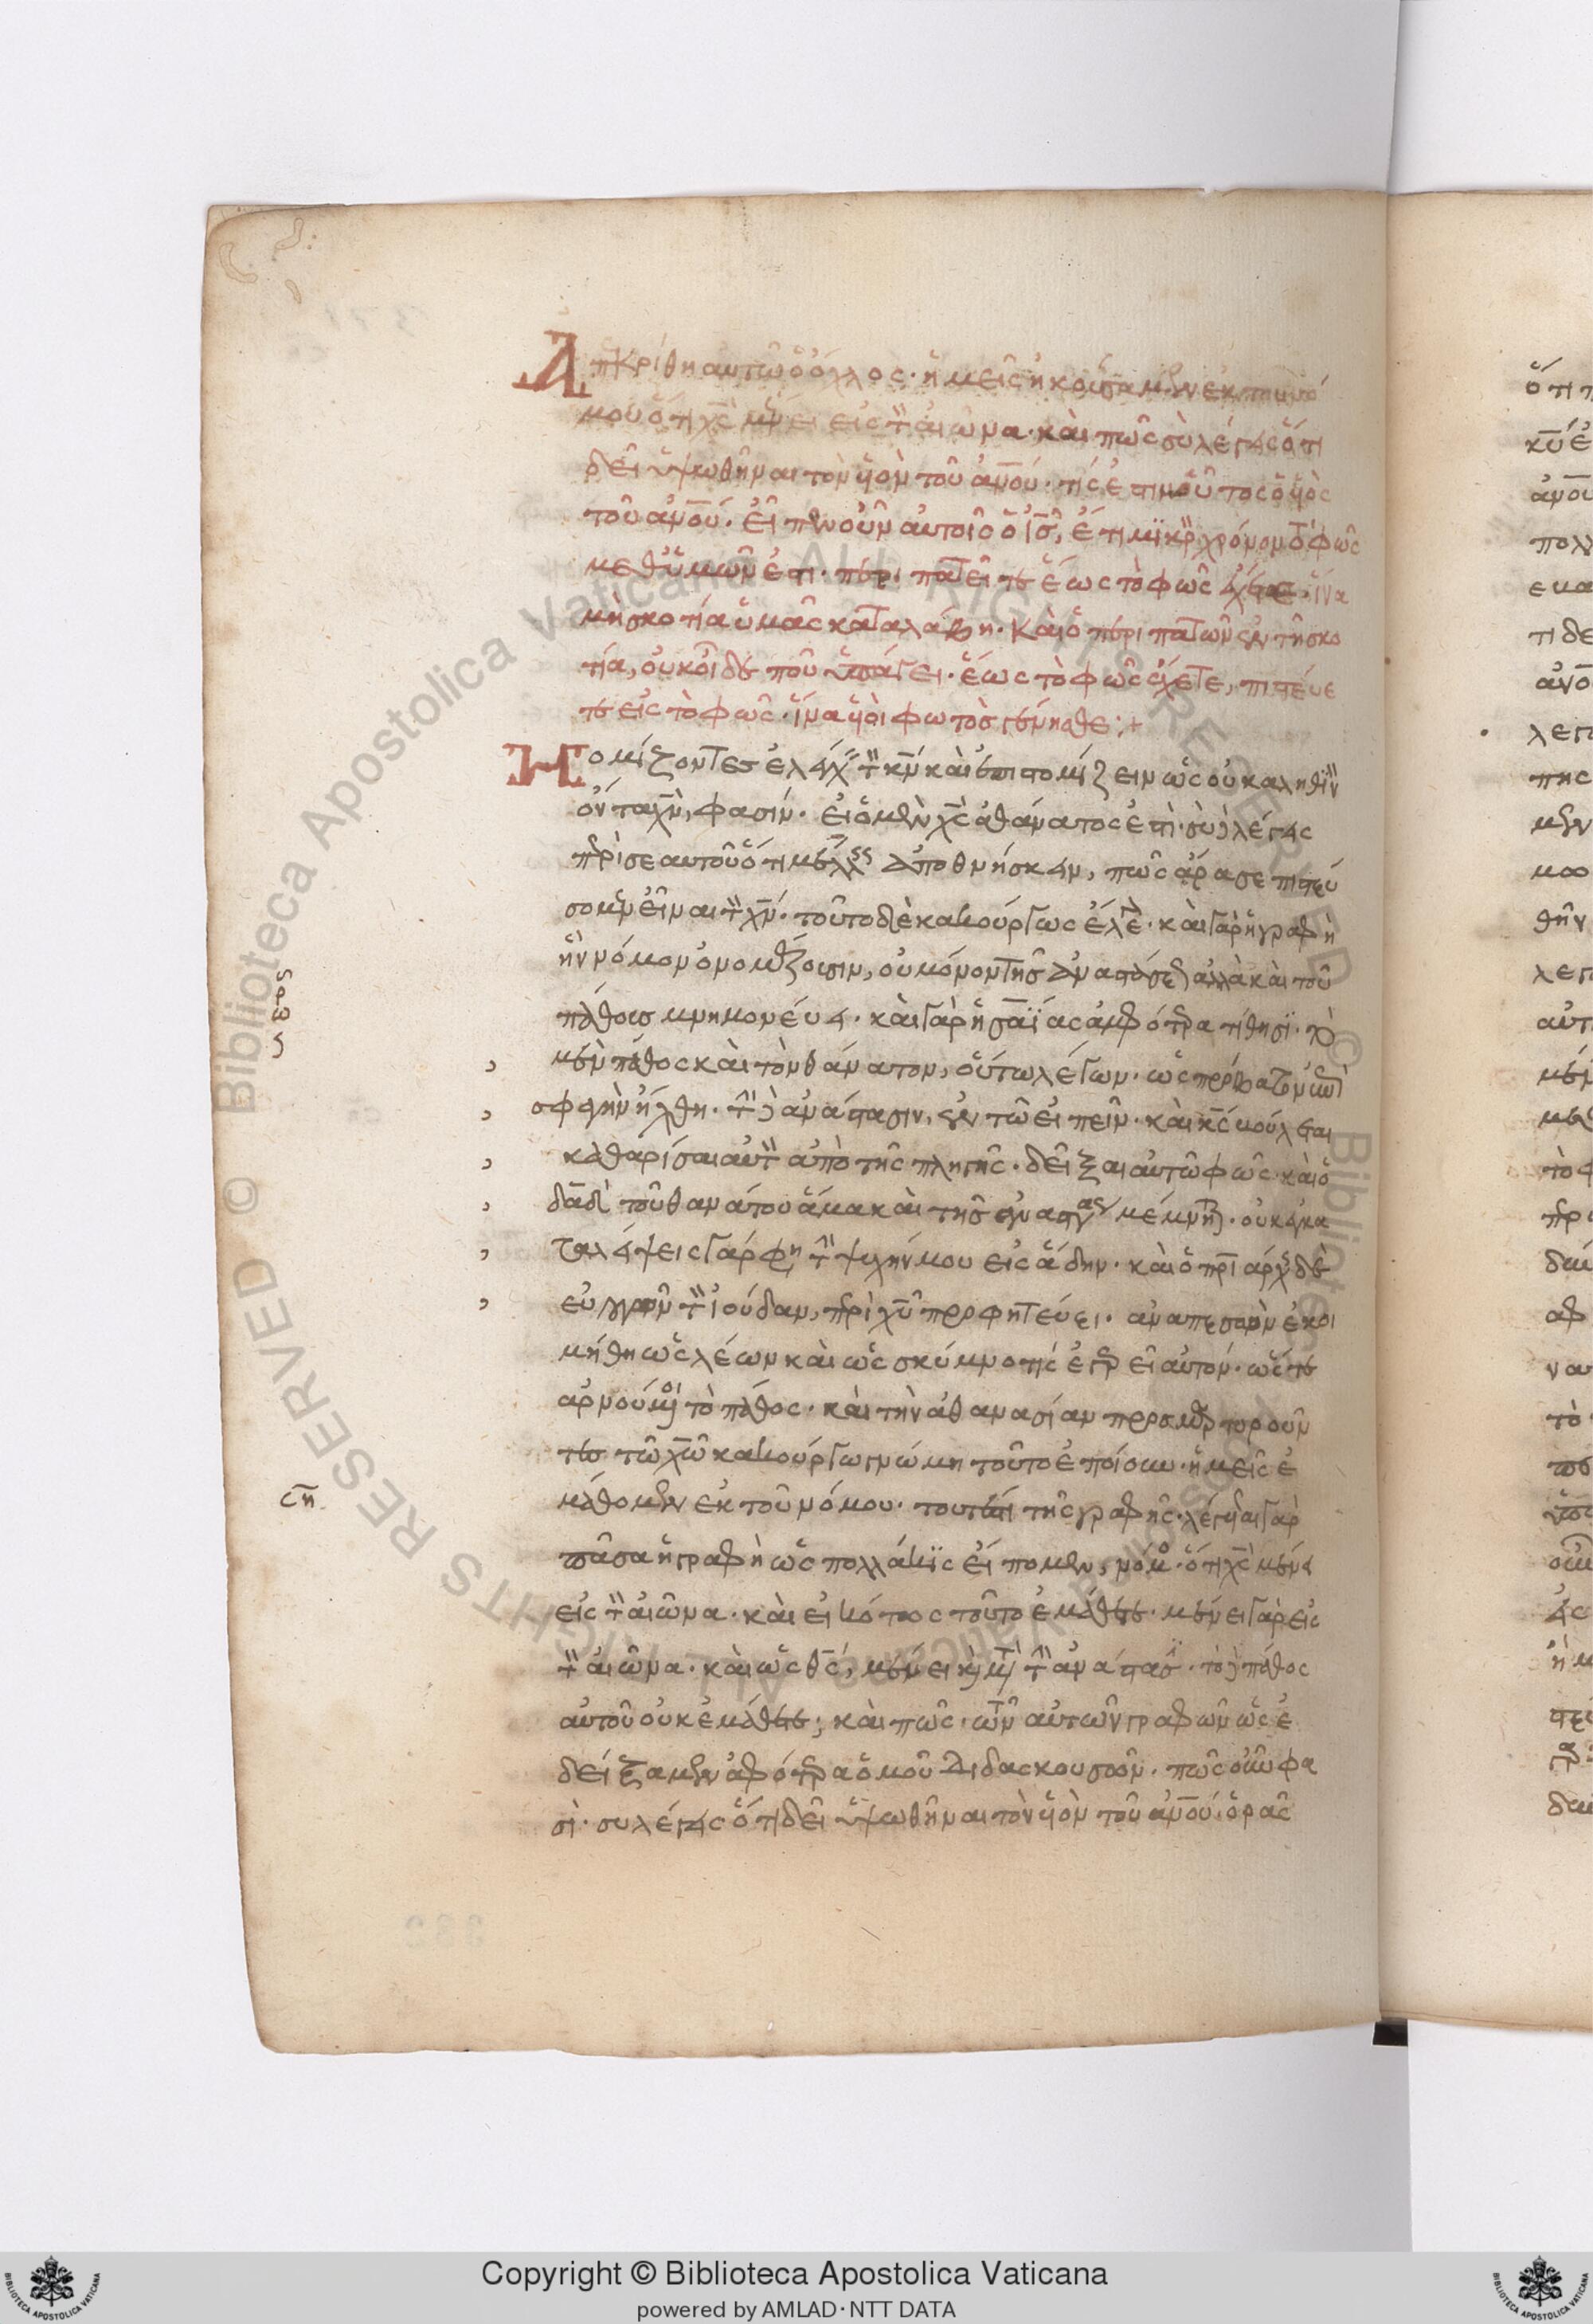 Ἀπκρίθη αὐτῶ ὁ ὄχλος· ἡμεῖς ἠκούσαμεν ἐκ τοῦ νό
μου ὅτι χς μένει εἰς τὸν αἰῶνα· καὶ πῶς σὺ λέγεις ὅτι
δεῖ ὑψωθῆναι τὸν υἱὸν τοῦ ἀνου· τίς ἐστιν οὗτος ὁ υἱὸς
τοῦ ἀνου. εἶπεν οὖν αὐτοῖς ὁ ις, ἔτι μικρὸν χρόνον τὸ φῶς
μεθ' ὑμῶν ἐστι· περιπατεῖτε ἕως τὸ φῶς ἔχετε, ἵνα
μὴ σκοτία ὑμᾶς καταλάβη· καὶ ὁ περιπατῶν ἐν τῆ σκο
τία, οὐκ οἶδε ποῦ ὑπάγει· ἕως τὸ φῶς ἔχετε, πιστεύε
τε εἰς τὸ φῶς· ἵνα υἱοὶ φωτὸς γένησθε:+
Νομίζοντες ἐλέγχειν τὸν κν καὶ ἐπιστομίζειν ὡς οὐκ ἀληθινὸν
ὄντα χν, φασίν· εἰ ὁ μὲν χς ἀθάνατος ἐστὶ· σὺ δὲ λέγεις
περὶ σεαυτοῦ ὅτι μέλλεις ἀποθνήσκειν, πῶς ἄρα σε πιστεύ
σομεν εἶναι τὸν χν· τοῦτο δὲ κακούργως ἔλεγον· καὶ γὰρ ἡ γραφὴ
ἣν νόμον ὀνομάζουσιν, οὐ μόνον τῆς ἀναστάσεως ἀλλὰ καὶ τοῦ
πάθους μνημονεύει· καὶ γὰρ ἡσαΐας ἀμφότερα τίθησι· τὸ
μὲν πάθος καὶ τὸν θάνατον, οὕτω λέγων· ὡς πρόβατον ἐπὶ
σφαγὴν ἤχθη· τὴν δὲ ἀνάστασιν, ἐν τῶ εἰπεῖν· καὶ κς βούλεται
καθαρίσαι αὐτὸν ἀπὸ τῆς πληγῆς· δεῖξαι αὐτῶ φῶς· καὶ ὁ
δαδ δὲ τοῦ θανάτου ἅμα καὶ τῆς ἀναστάσεως μέμνηται· οὐκ ἐγκα
ταλείψεις γάρ φησι τὴν ψυχήν μου εἰς ἅδην· καὶ ὁ πατριάρχης δὲ
εὐλογῶν τὸν ἰούδαν, περὶ χυ προφητεύει· ἀναπεσὼν ἐκοι
μήθη ὡς λέων καὶ ὡς σκύμνος τίς ἐγερεῖ αὐτόν· ὥστε
ἀρνούμενοι τὸ πάθος· καὶ τὴν ἀθανασίαν προσμαρτυροῦν
τες τῶ χω κακούργω γνώμη τοῦτο ἐποίουν· ἡμεῖς ἐ
μάθομεν ἐκ τοῦ νόμου· τουτέστι τῆς γραφῆς· λέγεται γὰρ
πᾶσα ἡ γραφὴ ὡς πολλάκις εἴπομεν, νόμος· ὅτι χς μένει
εἰς τὸν αἰῶνα· καὶ εἰκότως τοῦτο ἐμάθετε· μένει γὰρ εἰς
τὸν αἰῶνα· καὶ ὡς θς, μένει καὶ μετὰ τὴν ἀνάστασιν· τὸ δὲ πάθος
αὐτοῦ οὐκ ἐμάθετε; καὶ πῶς; τῶν αὐτῶν γραφῶν ὡς ἐ
δείξαμεν ἀμφότερα ὁμοῦ διδασκουσῶν· πῶς οὖν φα
σὶ· συ λέγεις ὅτι δεῖ ὑψωθῆναι τὸν υἱὸν τοῦ ἀνου· ὁρᾶς
ςη
Copyright © Biblioteca Apostolica Vaticana
powered by AMLAD·NTT DATA